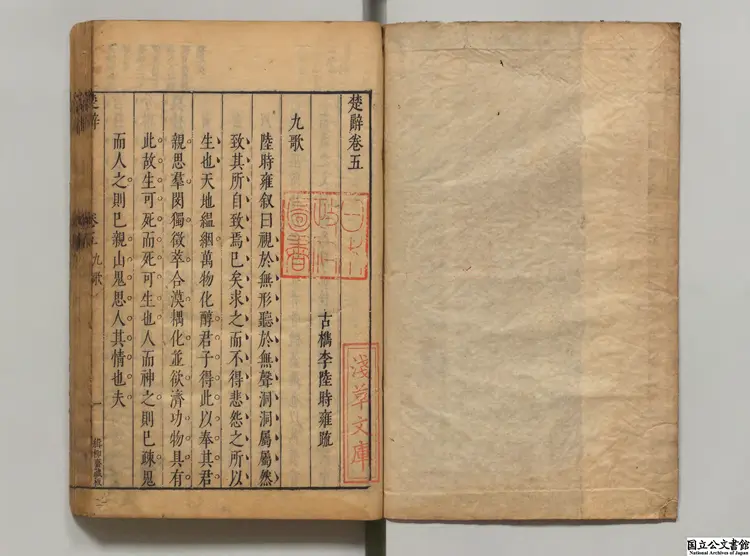 楚辭卷五
古檇李陸時雍䟽
九歌
陸時雍叙曰視於無形聽於無聲洞洞屬屬然
致其所自致焉已矣求之而不得悲怨之所以
生也天地緼絪萬物化醇君子得此以奉其君
親思羣閔獨徵萃合漠耦化並欲濟功物具有
此故生可死而死可生也人而神之則已疎鬼
而人之則已親山鬼思人其情也夫
楚辭
卷五 九歌
一
緝柳齋藏板
日本政府圖書
淺草文庫
国立公文書館
National Archives of Japan